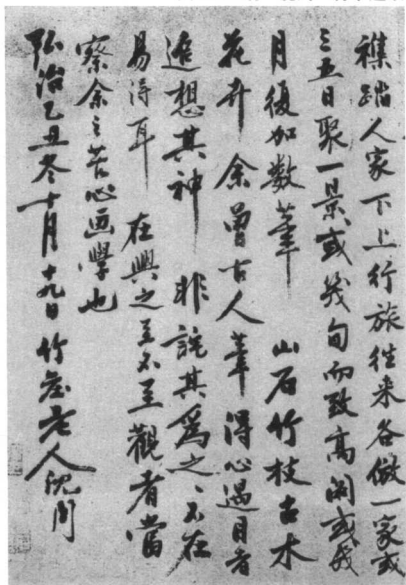 襍踏人家下上行旅往来各倣一家或
三五日聚一景或幾旬而致高閣或幾
月復加數筆 山石竹枝古木
花卉余曾古人筆得心過目者
追想其神 非説其為之、不在
易得耳 在興之至不至觀者當
察余之苦心画學也
弘治乙丑冬十月十九日竹老人沈周